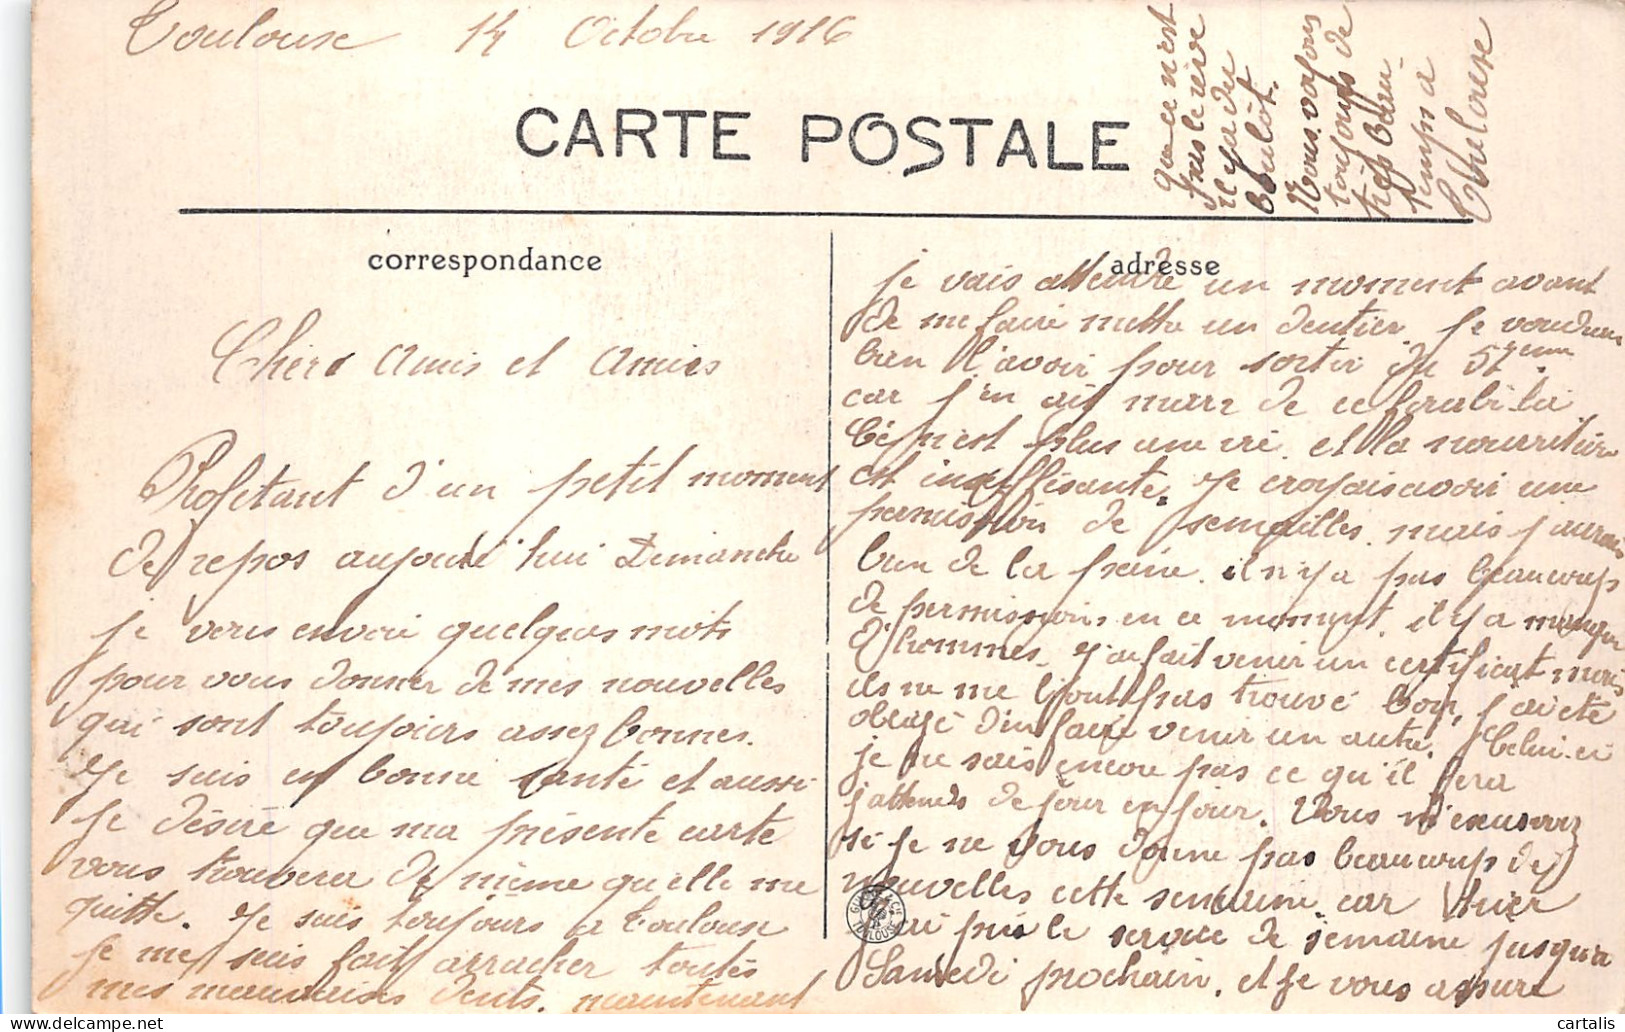 Toulouse 14 Octobre 1916
CARTE POSTALE
correspondance
adresse
Chers Amis et Amies
Profitant d'un petit moment
de repos aujourd'hui Dimanche
je vous envoie quelques mots
pour vous donner de mes nouvelles
qui sont toujours assez bonnes.
Je suis en bonne santé et aussi
je désire que ma présente carte
vous trouvera de même qu'elle me
quitte. Je suis toujours a Toulouse
je me suis fait arracher toutes
mes mauvaises dents. maintenant
je vais attendre un moment avant
de me faire mettre un dentier. Je voudrais
bien l'avoir pour sortir du 57eme
car j'en ait marre de ce fourbi-la
Cé n'est plus une vie. et la nourriture
est insuffisante. Je croyais avoir une
permission de semailles. mais j'aurais
bien de la peine. il n'y a pas beaucoup
de permissions en ce moment. il y a manque
d'hommes. J'ai fait venir un certificat mais
ils ne me l'ont pas trouvé bon, j'ai été
obligé d'en faire venir un autre. Celui-ci
je ne sais encore pas ce qu'il fera
j'attends de jour en jour. Vous m'excuserez
si je ne vous donne pas beaucoup de
nouvelles cette semaine car hier
j'ai pris le service de semaine jusqu'a
Samedi prochain. et je vous assure
que ce n'est
pas le rêve
il y a du
boulôt.
Nous avons
toujours de
très beau
temps a
Toulouse
TOULOUSE
cartalis
delcampe.net